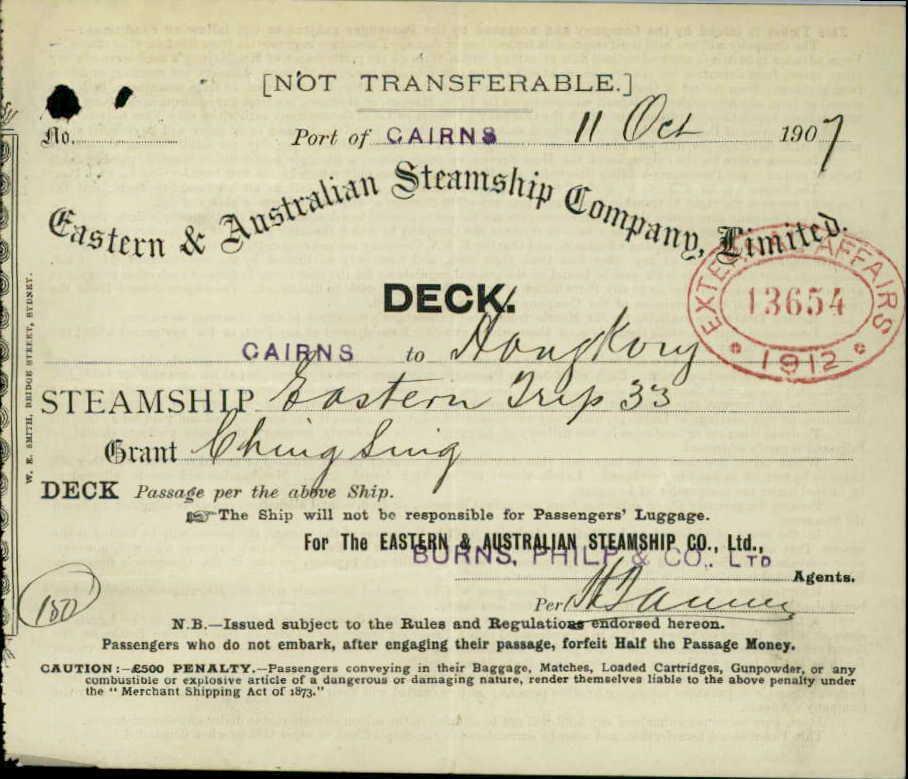 [NOT TRANSFERABLE.]
No. Port of CAIRNS 11 Oct 1907
Eastern & Australian Steamship Company, Limited.
EXTERNAL AFFAIRS
13654
1912
DECK.
CAIRNS to Hong Kong
STEAMSHIP Eastern Trip 33
Grant Ching Sing
DECK Passage per the above Ship.
The Ship will not be responsible for Passengers' Luggage.
For The EASTERN & AUSTRALIAN STEAMSHIP CO., Ltd.,
BURNS, PHILP & CO., LTD
Agents.
Per
150
N.B.—Issued subject to the Rules and Regulations endorsed hereon.
Passengers who do not embark, after engaging their passage, forfeit Half the Passage Money.
CAUTION:—£500 PENALTY.—Passengers conveying in their Baggage, Matches, Loaded Cartridges, Gunpowder, or any
combustible or explosive article of a dangerous or damaging nature, render themselves liable to the above penalty under
the "Merchant Shipping Act of 1873."
W. E. SMITH, BRIDGE STREET, SYDNEY.